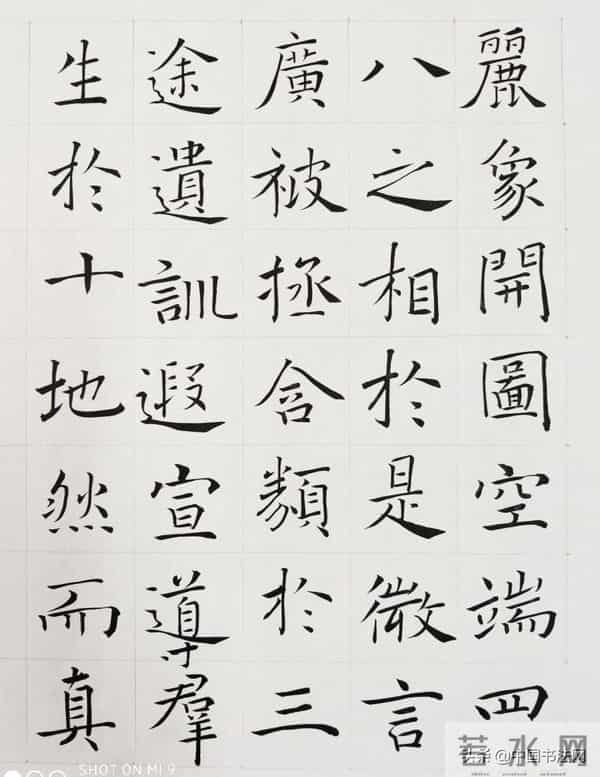 麗象開圖空端四
八之相於是微言
廣被拯含類於三
途遺訓遐宣導羣
生於十地然而真
SHOT ON MI 9
头条 @中国书法网
若水网